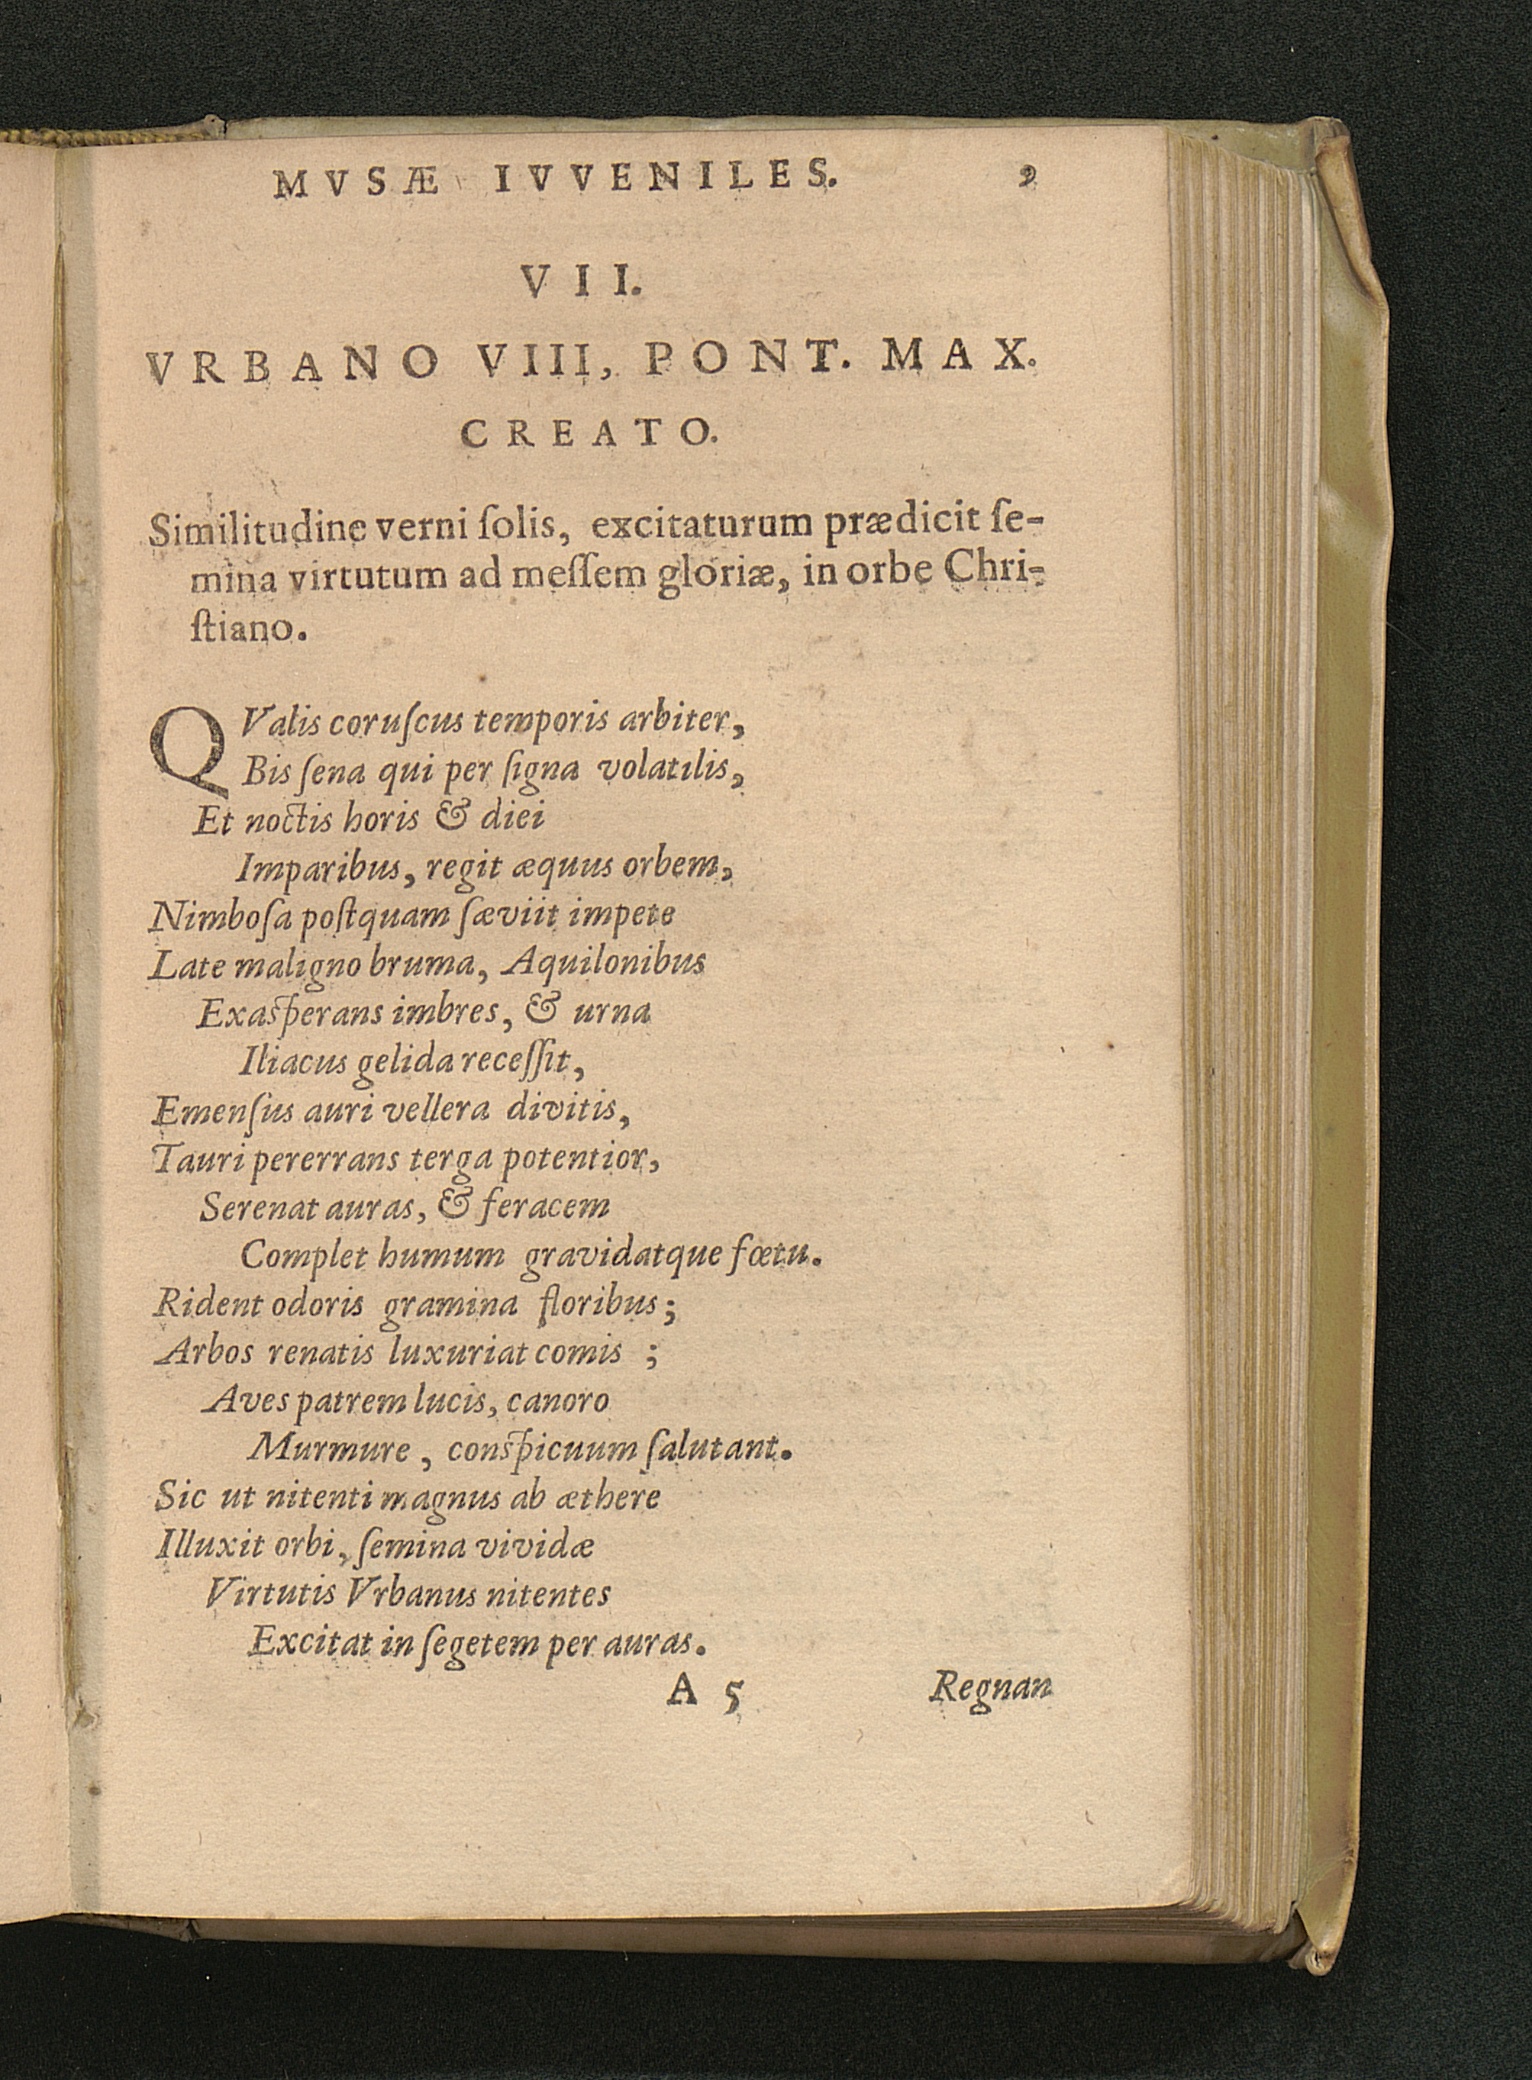 MVSÆ IVVENILES. 9
VII.
VRBANO VIII, PONT. MAX.
CREATO.
Similitudine verni ſolis, excitaturum prædicit ſe-
mina virtutum ad meſſem gloriæ, in orbe Chri-
ſtiano.
QValis coruſcus temporis arbiter,
Bis ſena qui per ſigna volatilis,
Et noctis horis & diei
Imparibus, regit æquus orbem,
Nimboſa poſtquam ſæviit impete
Late maligno bruma, Aquilonibus
Exaſperans imbres, & urna
Iliacus gelida receſſit,
Emenſus auri vellera divitis,
Tauri pererrans terga potentior,
Serenat auras, & feracem
Complet humum gravidatque fœtu.
Rident odoris gramina floribus;
Arbos renatis luxuriat comis ;
Aves patrem lucis, canoro
Murmure , conſpicuum ſalutant.
Sic ut nitenti magnus ab æthere
Illuxit orbi, ſemina vividæ
Virtutis Vrbanus nitentes
Excitat in ſegetem per auras.
A 5 Regnan